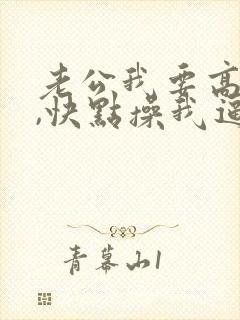 老公我要高
,快點操我逼
青幕山1